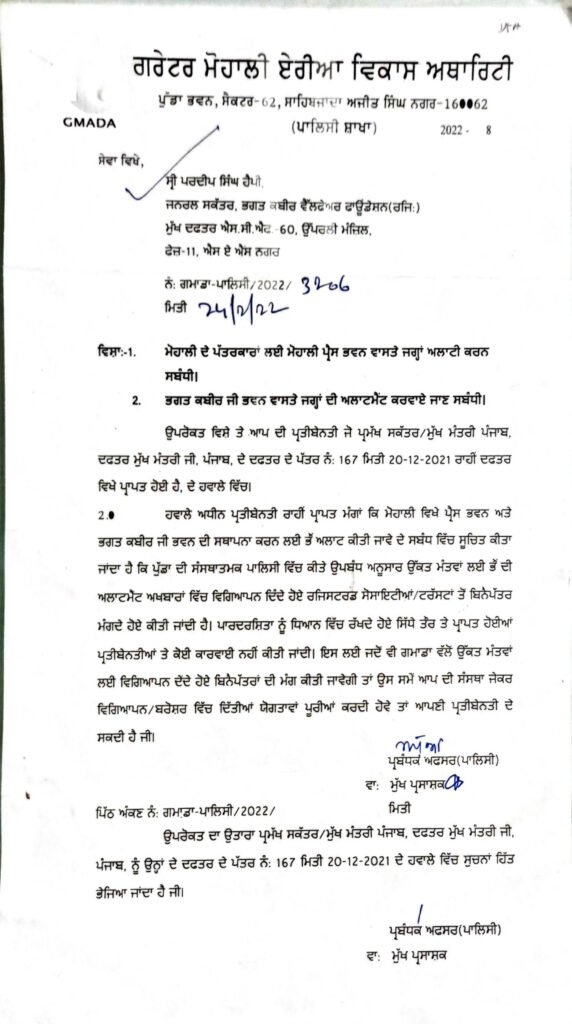 ਗਰੇਟਰ ਮੋਹਾਲੀ ਏਰੀਆ ਵਿਕਾਸ ਅਥਾਰਿਟੀ
ਪੁੱਡਾ ਭਵਨ, ਸੈਕਟਰ-62, ਸਾਹਿਬਜਾਦਾ ਅਜੀਤ ਸਿੰਘ ਨਗਰ-160062
GMADA
(ਪਾਲਿਸੀ ਸ਼ਾਖਾ) 2022 - 8
ਸੇਵਾ ਵਿਖੇ,
ਸ੍ਰੀ ਪਰਦੀਪ ਸਿੰਘ ਹੈਪੀ,
ਜਨਰਲ ਸਕੱਤਰ, ਭਗਤ ਕਬੀਰ ਵੈੱਲਫੇਅਰ ਫਾਊਂਡੇਸ਼ਨ(ਰਜਿ:)
ਮੁੱਖ ਦਫਤਰ ਐਸ.ਸੀ.ਐਫ.-60, ਉੱਪਰਲੀ ਮੰਜਿਲ,
ਫੇਜ਼-11, ਐਸ ਏ ਐਸ ਨਗਰ
ਨੰ: ਗਮਾਡਾ-ਪਾਲਿਸੀ/2022/ 3206
ਮਿਤੀ 24/2/22
ਵਿਸ਼ਾ:-1. ਮੋਹਾਲੀ ਦੇ ਪੱਤਰਕਾਰਾਂ ਲਈ ਮੋਹਾਲੀ ਪ੍ਰੈਸ ਭਵਨ ਵਾਸਤੇ ਜਗ੍ਹਾਂ ਅਲਾਟੀ ਕਰਨ
ਸਬੰਧੀ।
2. ਭਗਤ ਕਬੀਰ ਜੀ ਭਵਨ ਵਾਸਤੇ ਜਗ੍ਹਾਂ ਦੀ ਅਲਾਟਮੈਂਟ ਕਰਵਾਏ ਜਾਣ ਸਬੰਧੀ।
ਉਪਰੋਕਤ ਵਿਸ਼ੇ ਤੇ ਆਪ ਦੀ ਪ੍ਰਤੀਬੇਨਤੀ ਜੋ ਪ੍ਰਮੱਖ ਸਕੱਤਰ/ਮੁੱਖ ਮੰਤਰੀ ਪੰਜਾਬ,
ਦਫਤਰ ਮੁੱਖ ਮੰਤਰੀ ਜੀ, ਪੰਜਾਬ, ਦੇ ਦਫਤਰ ਦੇ ਪੱਤਰ ਨੰ: 167 ਮਿਤੀ 20-12-2021 ਰਾਹੀਂ ਦਫਤਰ
ਵਿਖੇ ਪ੍ਰਾਪਤ ਹੋਈ ਹੈ, ਦੇ ਹਵਾਲੇ ਵਿੱਚ।
2. ਹਵਾਲੇ ਅਧੀਨ ਪ੍ਰਤੀਬੇਨਤੀ ਰਾਹੀਂ ਪ੍ਰਾਪਤ ਮੰਗਾਂ ਕਿ ਮੋਹਾਲੀ ਵਿਖੇ ਪ੍ਰੈਸ ਭਵਨ ਅਤੇ
ਭਗਤ ਕਬੀਰ ਜੀ ਭਵਨ ਦੀ ਸਥਾਪਨਾ ਕਰਨ ਲਈ ਭੋਂ ਅਲਾਟ ਕੀਤੀ ਜਾਵੇ ਦੇ ਸਬੰਧ ਵਿੱਚ ਸੂਚਿਤ ਕੀਤਾ
ਜਾਂਦਾ ਹੈ ਕਿ ਪੁੱਡਾ ਦੀ ਸੰਸਥਾਤਮਕ ਪਾਲਿਸੀ ਵਿੱਚ ਕੀਤੇ ਉਪਬੰਧ ਅਨੁਸਾਰ ਉੱਕਤ ਮੰਤਵਾਂ ਲਈ ਭੋਂ ਦੀ
ਅਲਾਟਮੈਂਟ ਅਖਬਾਰਾਂ ਵਿੱਚ ਵਿਗਿਆਪਨ ਦਿੰਦੇ ਹੋਏ ਰਜਿਸਟਰਡ ਸੋਸਾਇਟੀਆਂ/ਟਰੱਸਟਾਂ ਤੋਂ ਬਿਨੈਪੱਤਰ
ਮੰਗਦੇ ਹੋਏ ਕੀਤੀ ਜਾਂਦੀ ਹੈ। ਪਾਰਦਰਸ਼ਿਤਾ ਨੂੰ ਧਿਆਨ ਵਿੱਚ ਰੱਖਦੇ ਹੋਏ ਸਿੱਧੇ ਤੌਰ ਤੇ ਪ੍ਰਾਪਤ ਹੋਈਆਂ
ਪ੍ਰਤੀਬੇਨਤੀਆਂ ਤੇ ਕੋਈ ਕਾਰਵਾਈ ਨਹੀਂ ਕੀਤੀ ਜਾਂਦੀ। ਇਸ ਲਈ ਜਦੋਂ ਵੀ ਗਮਾਡਾ ਵੱਲੋਂ ਉੱਕਤ ਮੰਤਵਾਂ
ਲਈ ਵਿਗਿਆਪਨ ਦੇਂਦੇ ਹੋਏ ਬਿਨੈਪੱਤਰਾਂ ਦੀ ਮੰਗ ਕੀਤੀ ਜਾਵੇਗੀ ਤਾਂ ਉਸ ਸਮੇਂ ਆਪ ਦੀ ਸੰਸਥਾ ਜੇਕਰ
ਵਿਗਿਆਪਨ/ਬਰੋਸ਼ਰ ਵਿੱਚ ਦਿੱਤੀਆਂ ਯੋਗਤਾਵਾਂ ਪੂਰੀਆਂ ਕਰਦੀ ਹੋਵੇ ਤਾਂ ਆਪਣੀ ਪ੍ਰਤੀਬੇਨਤੀ ਦੇ
ਸਕਦੀ ਹੈ ਜੀ।
ਪ੍ਰਬੰਧਕ ਅਫਸਰ(ਪਾਲਿਸੀ)
ਵਾ: ਮੁੱਖ ਪ੍ਰਸਾਸ਼ਕ
ਪਿੱਠ ਅੰਕਣ ਨੰ: ਗਮਾਡਾ-ਪਾਲਿਸੀ/2022/ ਮਿਤੀ
ਉਪਰੋਕਤ ਦਾ ਉਤਾਰਾ ਪ੍ਰਮੱਖ ਸਕੱਤਰ/ਮੁੱਖ ਮੰਤਰੀ ਪੰਜਾਬ, ਦਫਤਰ ਮੁੱਖ ਮੰਤਰੀ ਜੀ,
ਪੰਜਾਬ, ਨੂੰ ਉਨ੍ਹਾਂ ਦੇ ਦਫਤਰ ਦੇ ਪੱਤਰ ਨੰ: 167 ਮਿਤੀ 20-12-2021 ਦੇ ਹਵਾਲੇ ਵਿੱਚ ਸੁਚਨਾਂ ਹਿੱਤ
ਭੇਜਿਆ ਜਾਂਦਾ ਹੈ ਜੀ।
ਪ੍ਰਬੰਧਕ ਅਫਸਰ(ਪਾਲਿਸੀ)
ਵਾ: ਮੁੱਖ ਪ੍ਰਸਾਸ਼ਕ